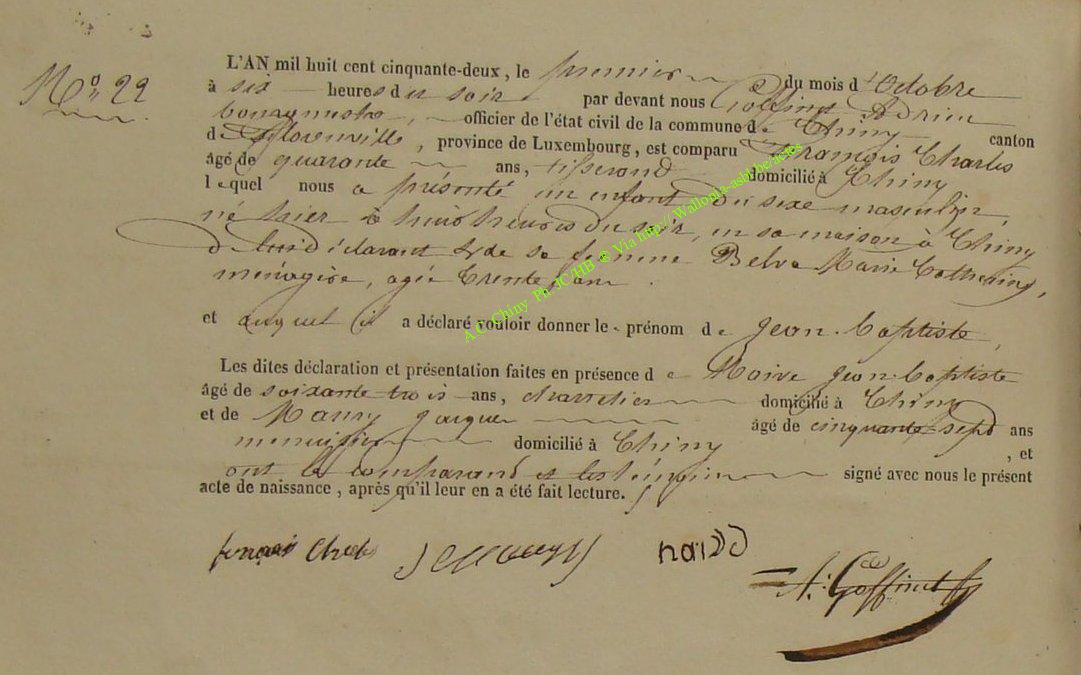 N° 22
L'AN mil huit cent cinquante-deux, le premier du mois d'Octobre
à six heures du soir par devant nous Goffinet Adrien
bourgmestre, officier de l'état civil de la commune de Chiny canton
de Florenville, province de Luxembourg, est comparu François Charles
âgé de quarante ans, tisserand domicilié à Chiny
lequel nous a présenté un enfant du sexe masculin,
né hier à huit heures du soir, en sa maison à Chiny
de lui déclarant & de sa femme Belva Marie Catherine,
ménagère, agée trente ans.
et auquel il a déclaré vouloir donner le prénom de Jean-Baptiste,
Les dites déclaration et présentation faites en présence de Jean-Baptiste
âgé de soixante trois ans, domicilié à Chiny
et de Maury Jacques âgé de cinquante sept ans
menuisier domicilié à Chiny, et
ont le comparant et les témoins signé avec nous le présent
acte de naissance, après qu'il leur en a été fait lecture.
françois Charles
A. Goffinet
A C Chiny Ph JC/HB © Via http// Wallonia-asbl.be/actes